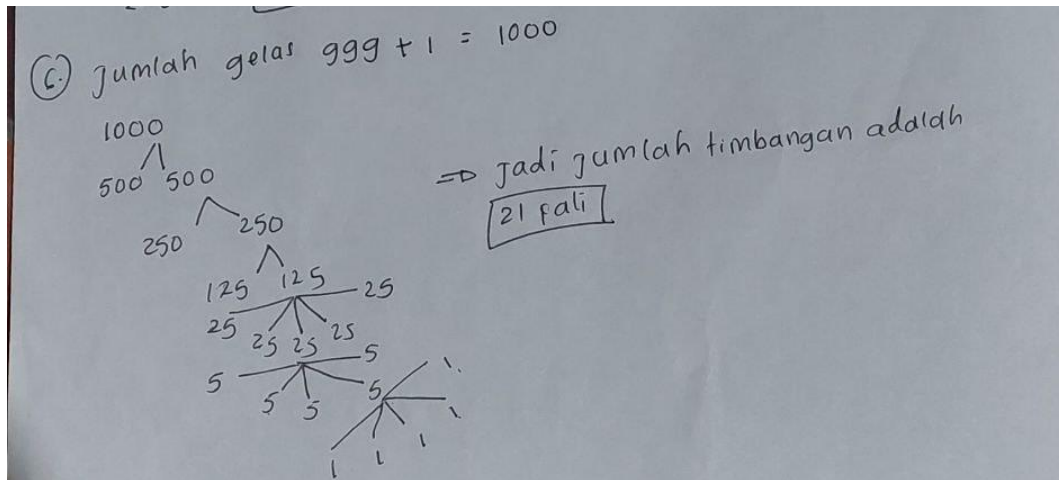 6. Jumlah gelas 999 + 1 = 1000
1000
500 500
250 250
125 125
25 25 25 25 25
5 5 5 5 5
1 1 1 1 1
⇒ Jadi jumlah timbangan adalah
21 kali